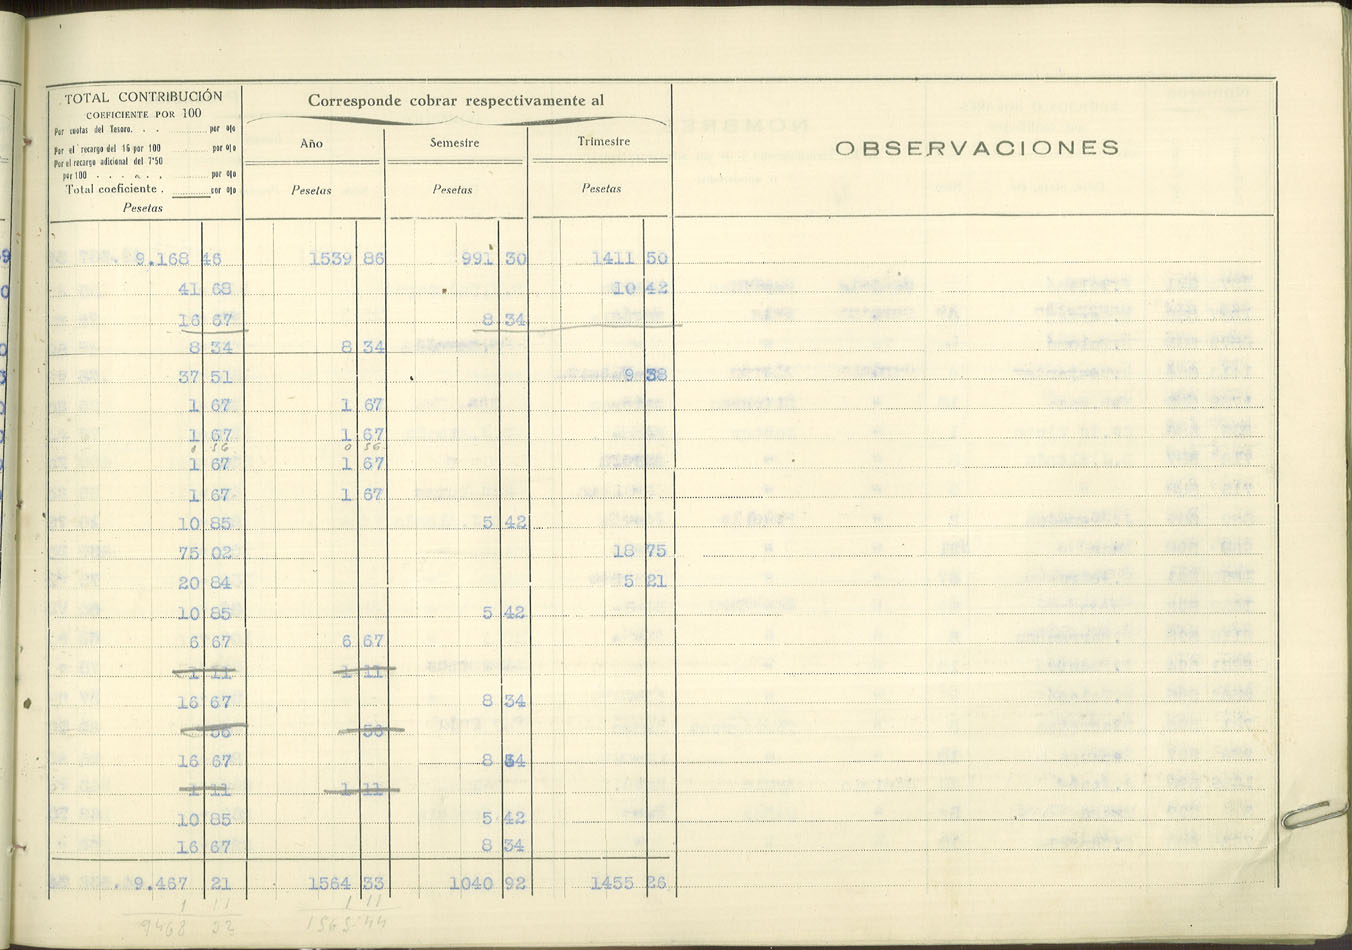 TOTAL CONTRIBUCIÓN
COEFICIENTE POR 100
Por cuotas del Tesoro. . . ............ por o|o
Por el recargo del 16 por 100 ............ por o|o
Por el recargo adicional del 7'50
por 100 . . . . . . ............ por o|o
Total coeficiente . ............ por o|o
Pesetas
Corresponde cobrar respectivamente al
Año Semestre Trimestre
Pesetas Pesetas Pesetas
OBSERVACIONES
9.168 46 1539 86 991 30 1411 50
41 68 10 42
16 67 8 34
8 34 8 34
37 51 9 38
1 67 1 67
1 67 1 67
0 56 0 56
1 67 1 67
1 67 1 67
10 85 5 42
75 02 18 75
20 84 5 21
10 85 5 42
6 67 6 67
1 11 1 11
16 67 8 34
56 56
16 67 8 34
1 11 1 11
10 85 5 42
16 67 8 34
9.467 21 1564 33 1040 92 1455 26
1 11 1 11
9468 32 1565 44